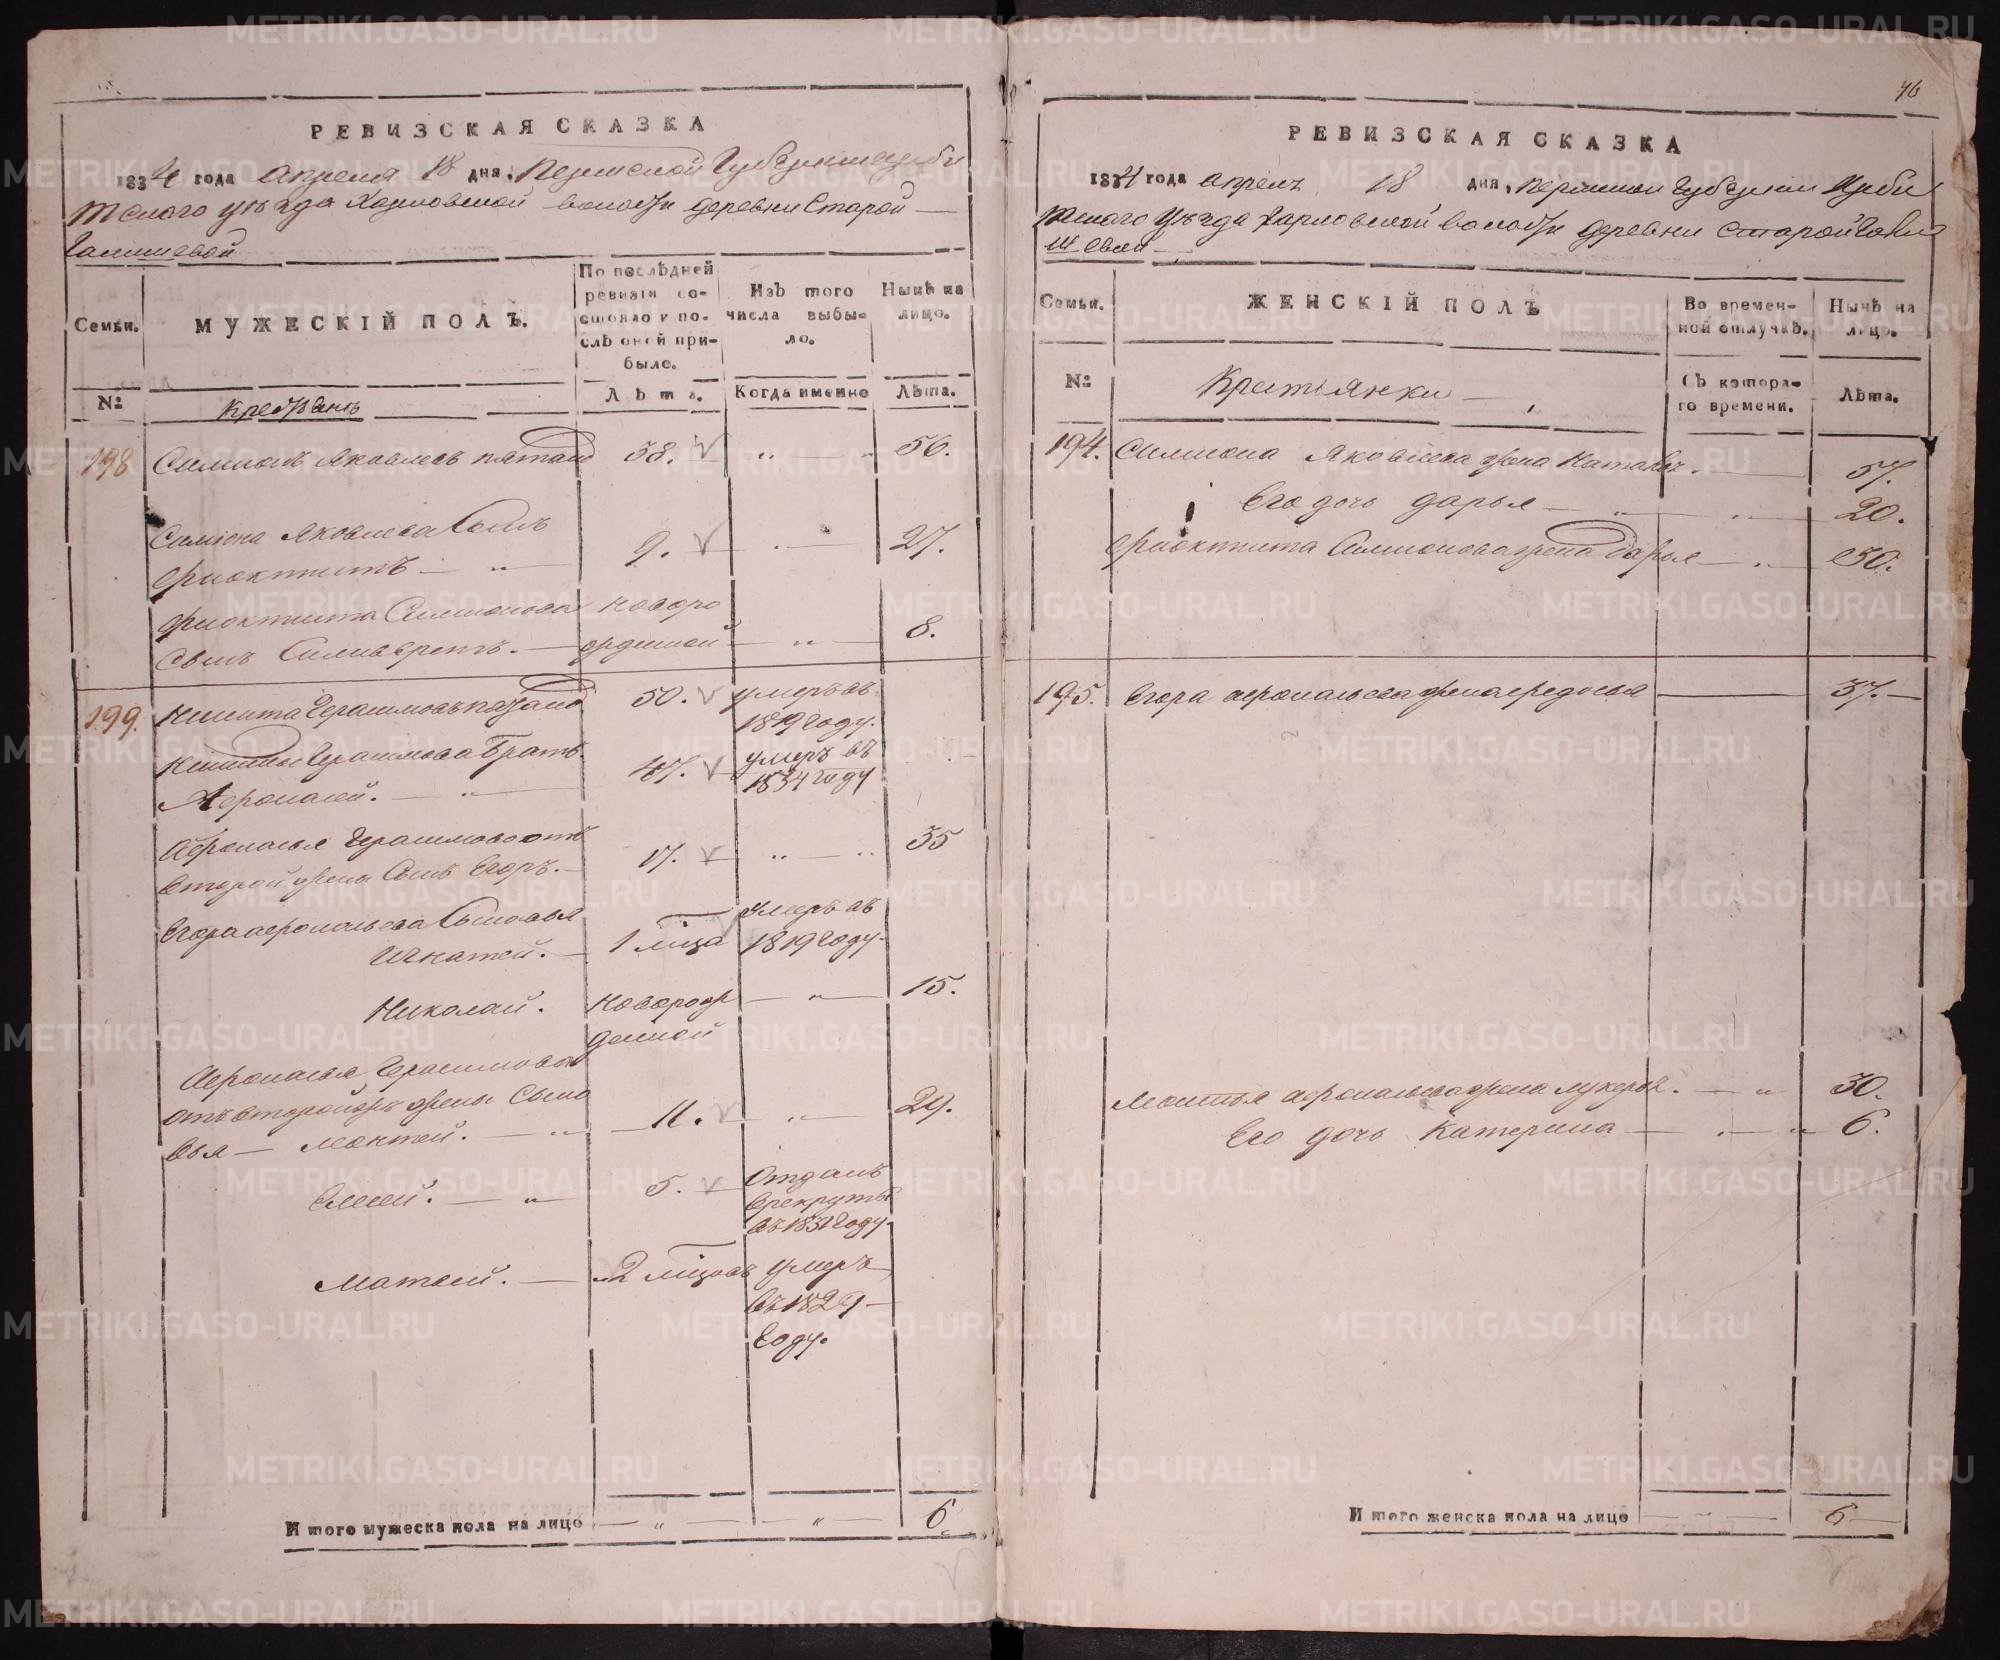 76
РЕВИЗСКАЯ СКАЗКА
1834 года Апреля 18 дня, Пермской Губернии Ирби
тского уезда Харловской волости деревни Старой
Семьи.
МУЖЕСКІЙ ПОЛЪ.
По послѣдней ревизіи состояло и послѣ оной прибыло.
Изъ того числа выбыло.
Нынѣ на лицо.
№
Крестьянъ
Лѣта.
Когда именно
Лѣта.
198 Симионъ Яковлевъ 38. 56.
Симиона Яковлева Сынъ
Фиоктитъ 9. 27.
Фиоктита Симионова новоро
Сынъ Силиверстъ. жденной 8.
199. Никита Герасимовъ 50. умеръ въ
1819 году.
Никиты Герасимова Братъ
Афонасей. 47. умеръ въ
1834 году
Афонасья Герасимова отъ
второй жены Сынъ Егоръ. 17. 35
Егора Афонасьева Сыновья
Игнатей. 1 міца умеръ въ
1819 году.
Николай. новорож
денной 15.
Афонасья Герасимова
отъ второй жены Сыно
вья Моктей. 11. 29.
Елисей. 5. Отданъ
врекруты
въ 1831 году.
Матвей. 2 міцовъ умеръ
въ 1829
году.
Итого мужеска пола на лицо 6.
РЕВИЗСКАЯ СКАЗКА
1834 года Апреля 18 дня, Пермской Губернии Ирби
тского Уезда Харловской волости деревни Старой
Семьи.
ЖЕНСКІЙ ПОЛЪ
Во временной отлучкѣ.
Нынѣ на лицо.
№
Крестьянки
Съ котораго времени.
Лѣта.
194. Симиона Яковлева жена Наталья. 57.
Его дочь дарья 20.
Фиоктита Симионова жена дарья 30.
195. Егора Афонасьева жена федосья 37.
Моктея Афонасьева жена лукерья. 30.
Его дочь Катерина 6.
Итого женска пола на лицо 6
METRIKI.GASO-URAL.RU